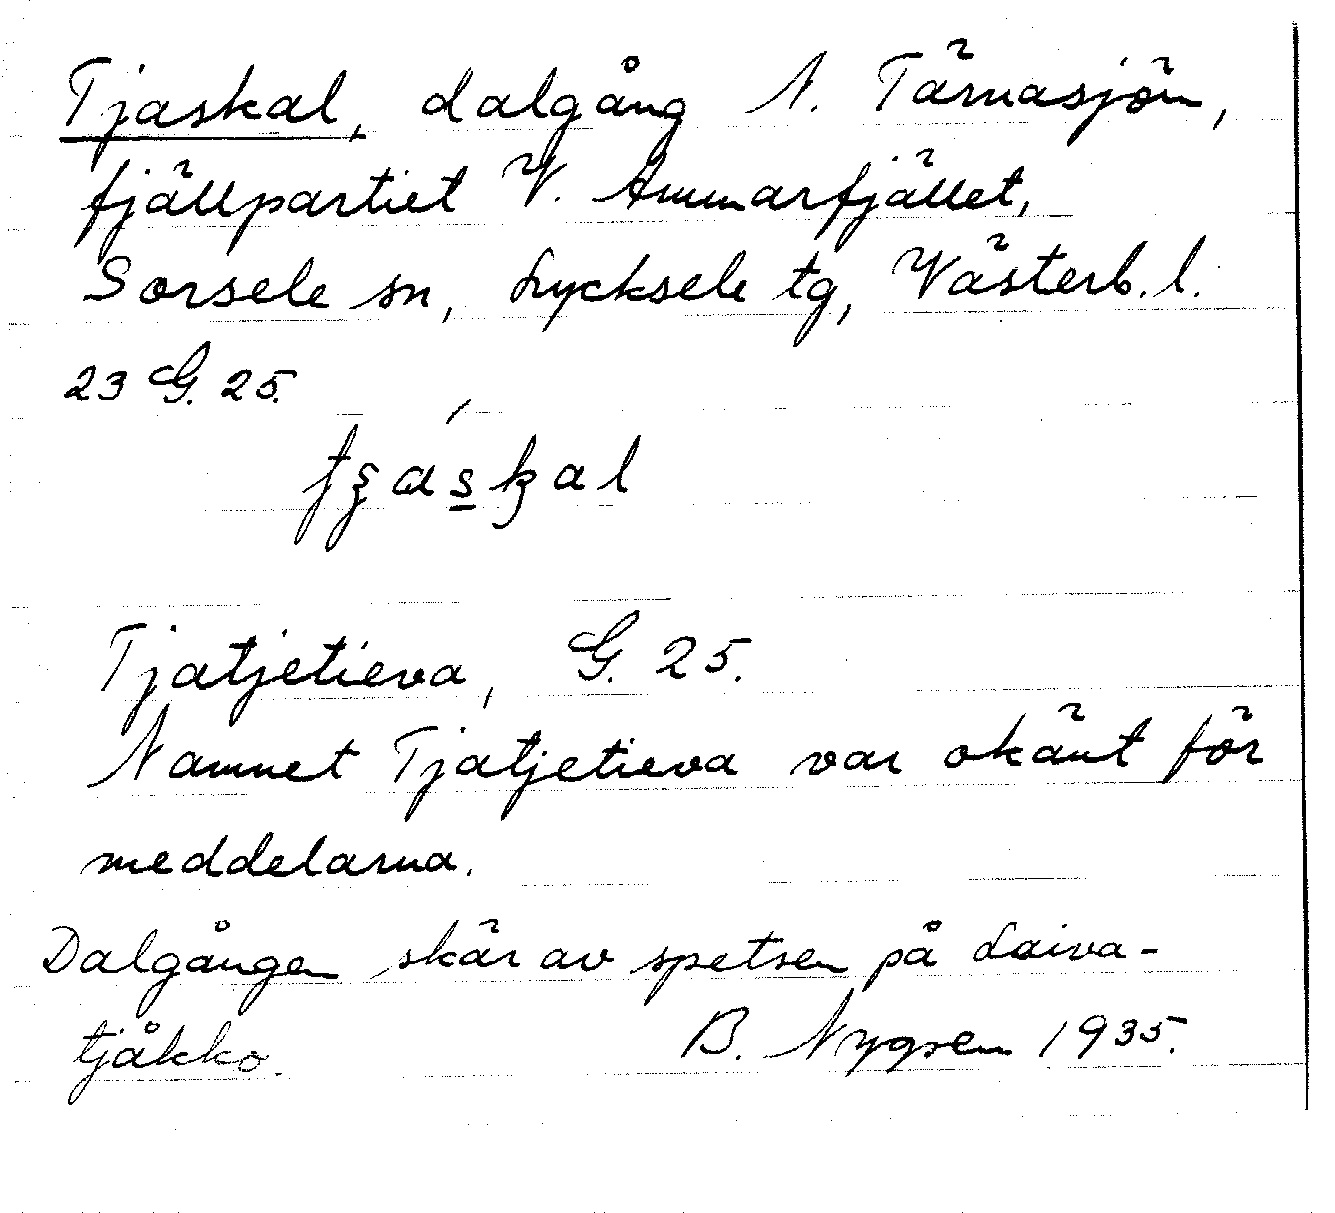 Tjaskal, dalgång N. Tärnasjön,
fjällpartiet V. Ammarfjället,
Sorsele sn, Lycksele tg, Västerb. l.
23 G. 25.
Tjatjetieva, G. 25.
Namnet Tjatjetieva var okänt för
meddelarna.
Dalgången skär av spetsen på Laiva-
tjåkko.
B. Nygren 1935.